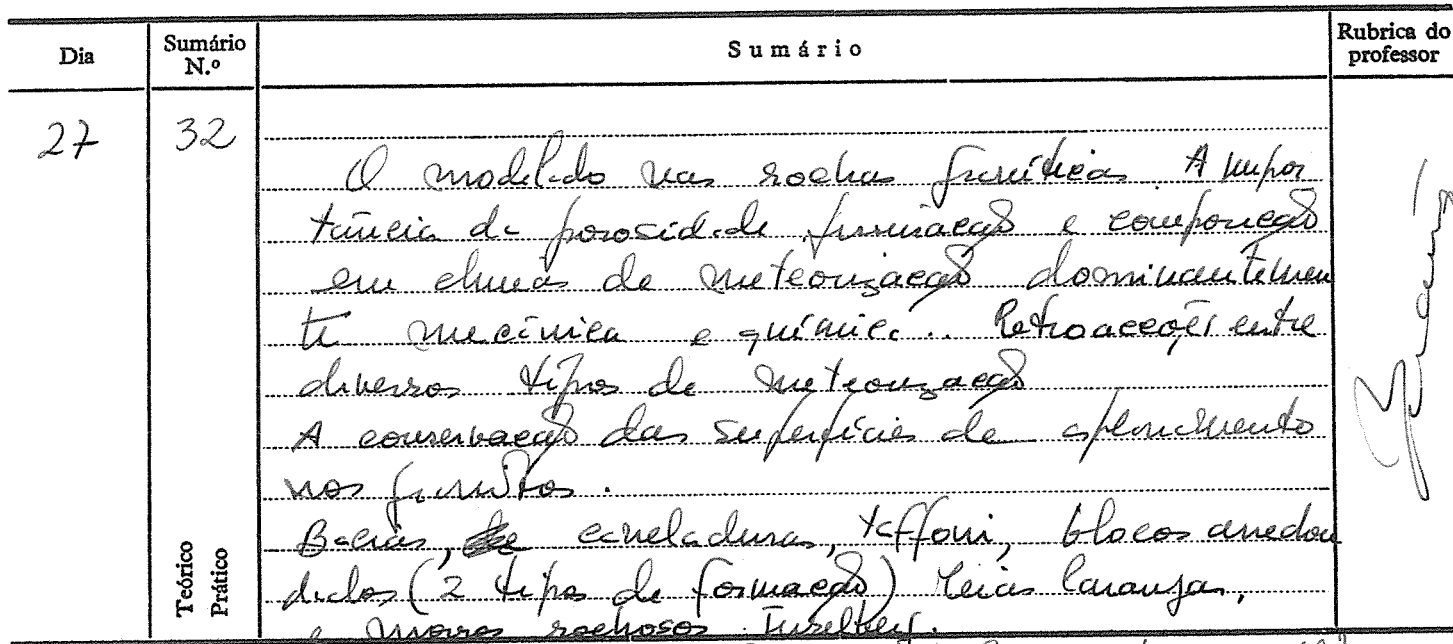 Dia Sumário N.º Sumário Rubrica do professor
27 32
O modelado nas rochas graníticas. A impor
tância da porosidade, fissuração e composição
em climas de meteorização dominantemen
te mecânica e química. Retroacções entre
diversos tipos de meteorização
A conservação das superfícies de aplanamento
nos granitos.
Bacias, caneladuras, taffoni, blocos arredon
dados (2 tipos de formação) Meias laranjas,
e morros rochosos. Inselberg.
Teórico
Prático